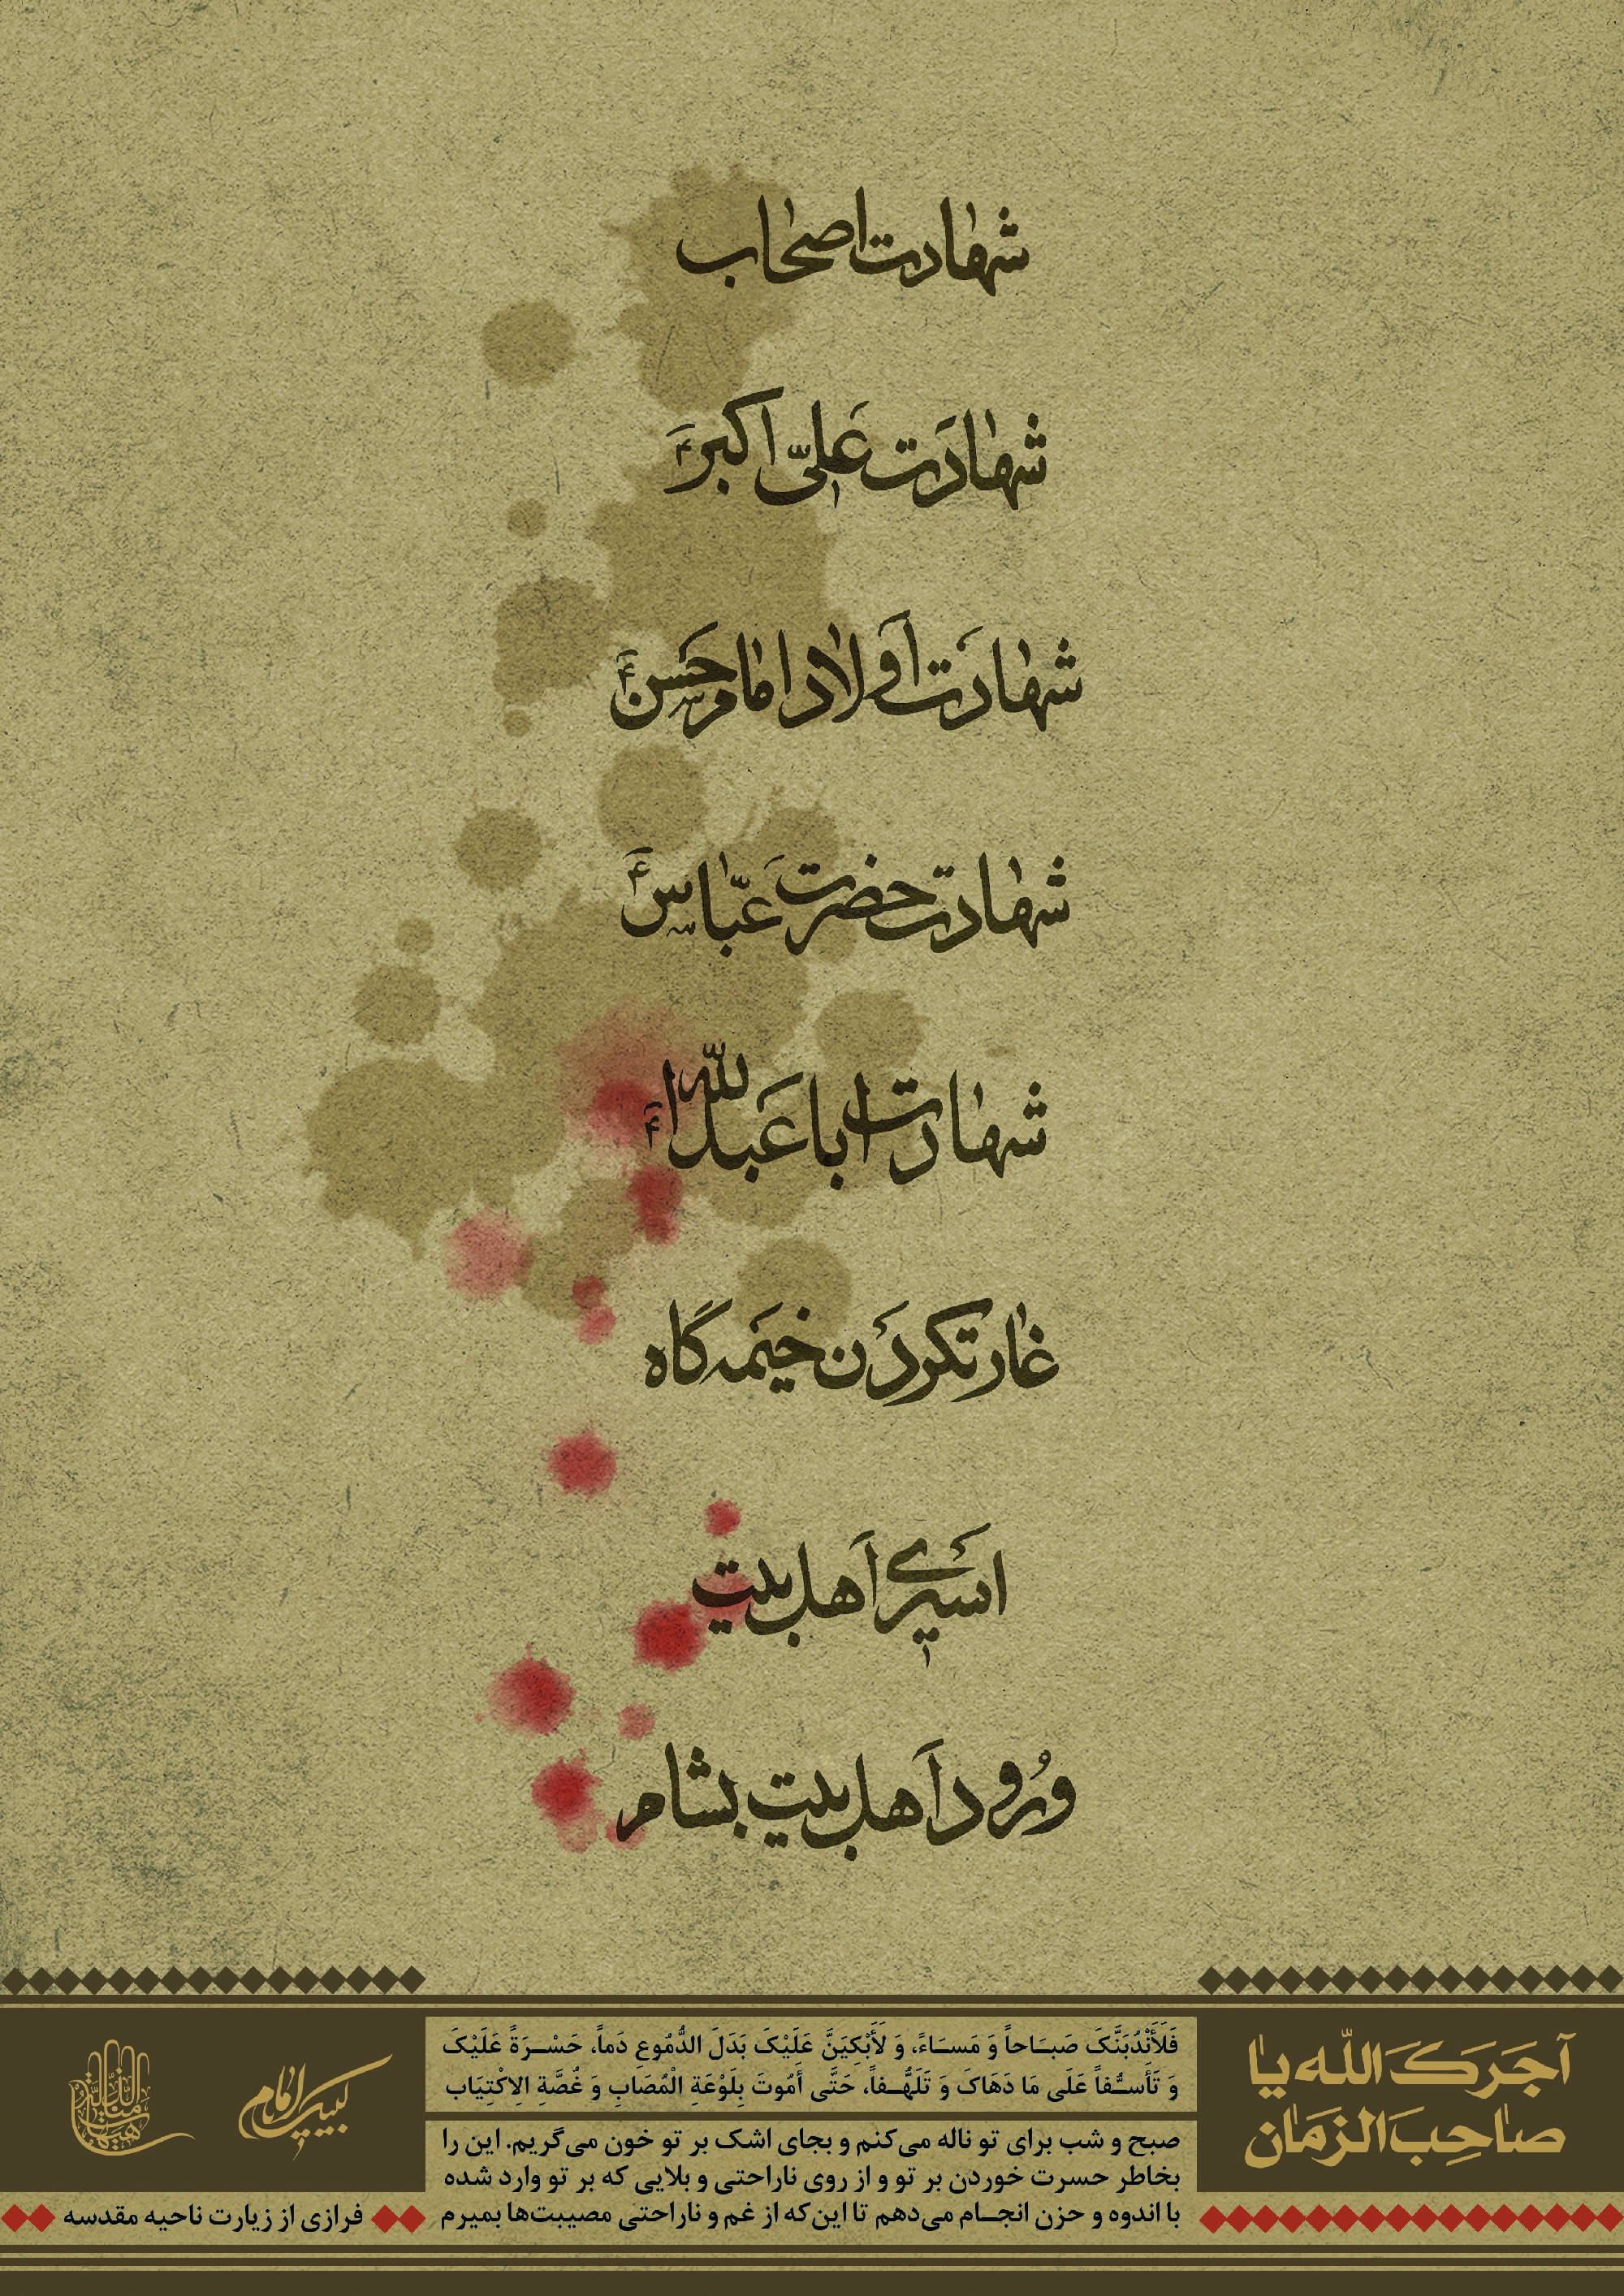 شهادت اصحاب
شهادَت عَلیّ اکبرَ ع
شهادَت اَولاد امام حَسن ع
شهادت حضرت عَبّاس ع
شهادت اباعَبدالله ع
غارت کردن خیمه گاه
اسیری اَهل بیت
وُرود اَهل بیت بشام
آجَرَکَ اللّه یا
صاحِبَ الزمَان
فَلَأَنْدُبَنَّکَ صَبَاحاً وَ مَسَاءً، وَ لَأَبْکِیَنَّ عَلَیْکَ بَدَلَ الدُّمُوعِ دَماً، حَسْرَةً عَلَیْکَ
وَ تَأَسُّفاً عَلَی مَا دَهَاکَ وَ تَلَهُّفاً، حَتَّی أَمُوتَ بِلَوْعَةِ الْمُصَابِ وَ غُصَّةِ الِاکْتِیَابِ
صبح و شب برای تو ناله می‌کنم و بجای اشک بر تو خون می‌گریم. این را
بخاطر حسرت خوردن بر تو و از روی ناراحتی و بلایی که بر تو وارد شده
با اندوه و حزن انجام می‌دهم تا این‌که از غم و ناراحتی مصیبت‌ها بمیرم
لبیک یا امام
هیهات منا الذلة
فرازی از زیارت ناحیه مقدسه